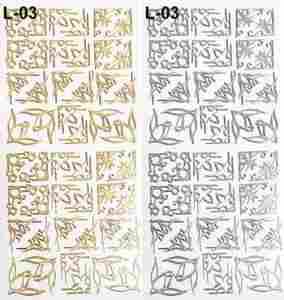 L-03
L-03